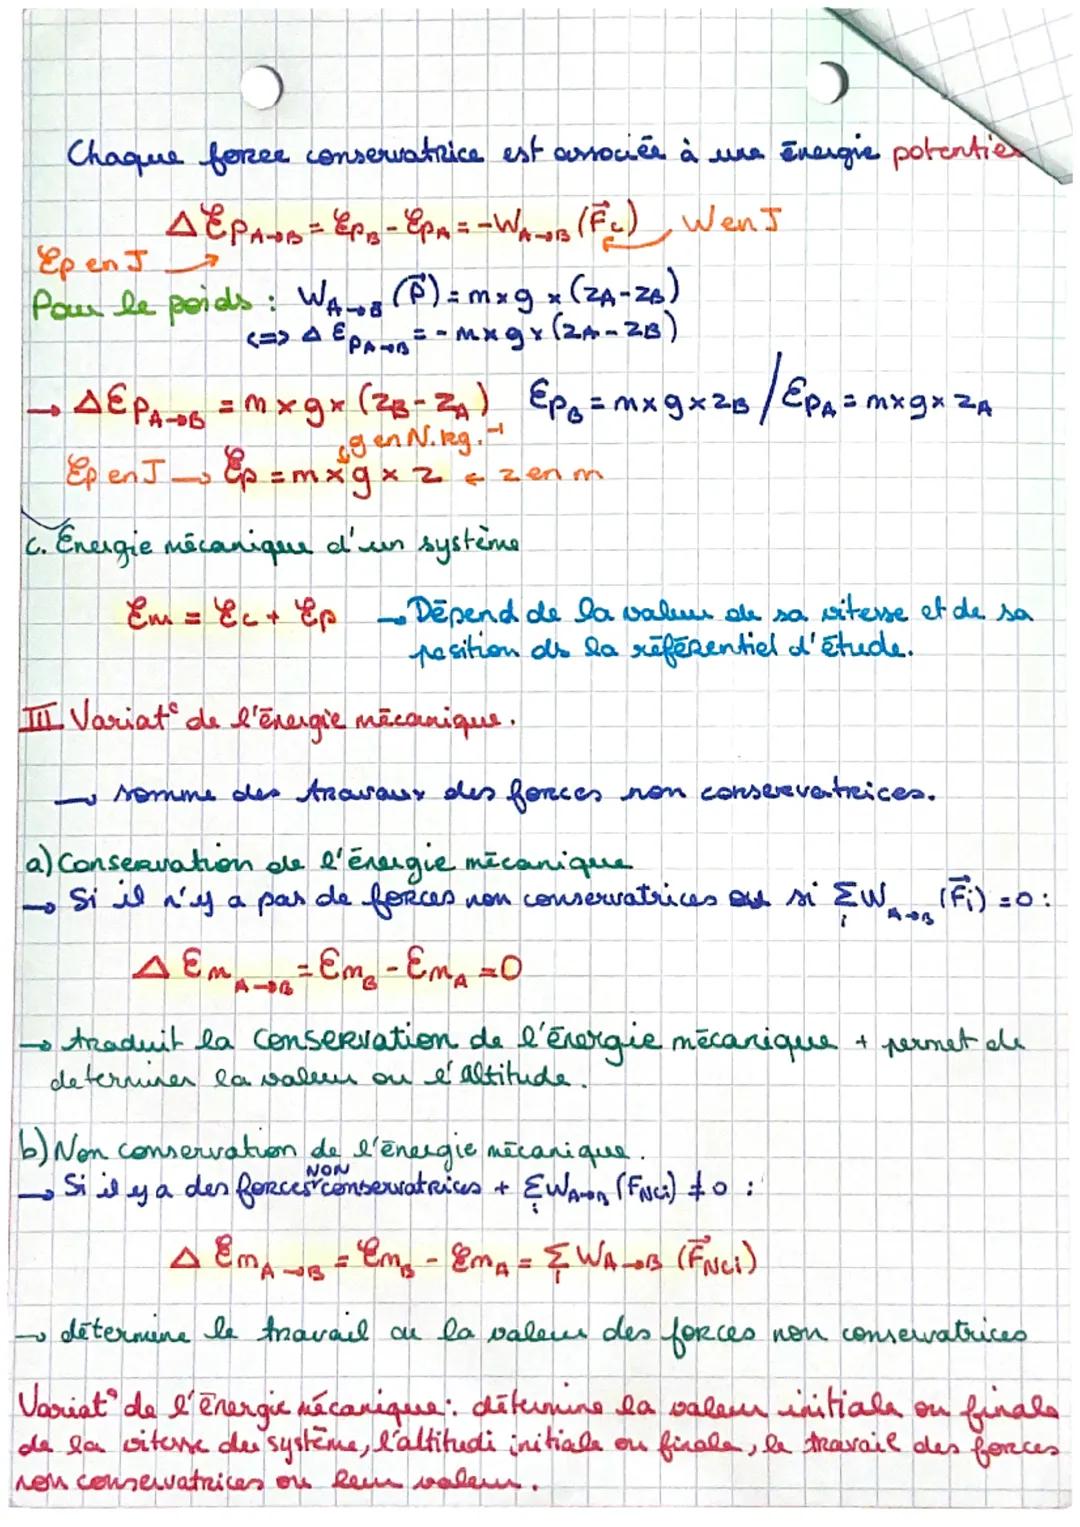 Chaque force conservatrice est associée à une énergie potentiel
ΔEp A→B = EpB - EpA = -W A→B (F⃗c) W en J
Ep en J →
Pour le poids : W A→B (P⃗) = m×g × (zA-zB)
<=> ΔEp A→B = - m×g×(zA - zB)
→ ΔEp A→B = m×g×(zB-zA) EpB = m×g×zB / EpA = m×g×zA
g en N.kg.⁻¹
Ep en J → Ep = m×g×z ← z en m
c. Énergie mécanique d'un système
Em = Ec + Ep → Dépend de la valeur de sa vitesse et de sa
position ds la référentiel d'étude.
III Variat° de l'énergie mécanique.
→ somme des travaux des forces non conservatrices.
a) Conservation de l'énergie mécanique
→ Si il n'y a pas de forces non conservatrices ou si ΣW A→B (F⃗i) = 0 :
i
ΔEm A→B = EmB - EmA = 0
→ traduit la conservation de l'énergie mécanique + permet de
determiner la valeur ou l'altitude.
b) Non conservation de l'énergie mécanique.
NON
→ Si il y a des forces conservatrices + Σi W A→B (FNCi) ≠ 0 :
ΔEm A→B = EmB - EmA = Σi W A→B (F⃗NCi)
→ détermine le travail ou la valeur des forces non conservatrices
Variat° de l'énergie mécanique : détermine la valeur initiale ou finale
de la vitesse du système, l'altitudi initiale ou finale, le travail des forces
non conservatrices ou leur valeur.